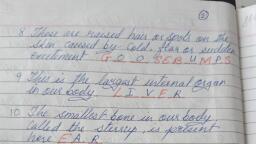 2
8 These are raised hair or spots on the
skin caused by cold, fear or sudden
excitement G O O S E B U M P S
9 This is the largest internal organ
in our body. L I V E R
10 The smallest bone in our body
called the sterrup, is present
here E A R